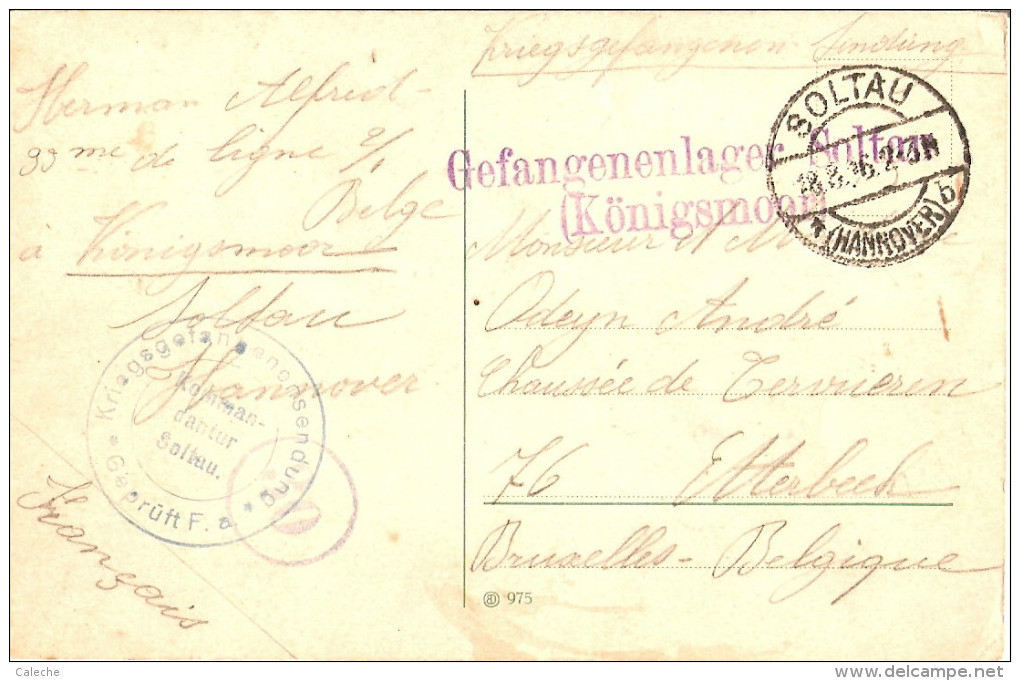 Kriegsgefangenen-Sendung
Herman Alfred
33me de ligne 9/1
Belge
à Königsmoor
Soltau
Hannover
Français
Kriegsgefangenensendung
Komman-
dantur
Soltau.
Geprüft F. a
Gefangenenlager Soltau
(Königsmoor)
SOLTAU
(HANNOVER) b
Monsieur et
Odeyn André
Chaussée de Tervueren
76 Etterbeek
Bruxelles-Belgique
975
Caleche
www.delcampe.net